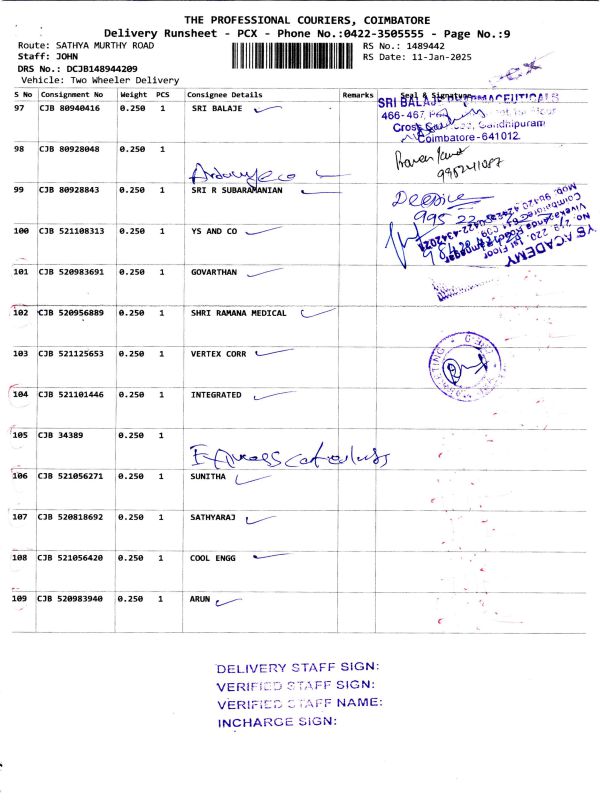 THE PROFESSIONAL COURIERS, COIMBATORE
Delivery Runsheet - PCX - Phone No.:0422-3505555 - Page No.:9
Route: SATHYA MURTHY ROAD RS No.: 1489442
Staff: JOHN RS Date: 11-Jan-2025
DRS No.: DCJB148944209
Vehicle: Two Wheeler Delivery
S No Consignment No Weight PCS Consignee Details Remarks Seal & Signature
97 CJB 80940416 0.250 1 SRI BALAJE
SRI BALAJE PHARMACEUTICALS
466-467,
Cross Gandhipuram
Coimbatore-641012.
98 CJB 80928048 0.250 1
99 CJB 80928843 0.250 1 SRI R SUBARAMANIAN
100 CJB 521108313 0.250 1 YS AND CO
YS ACADEMY
101 CJB 520983691 0.250 1 GOVARTHAN
102 CJB 520956889 0.250 1 SHRI RAMANA MEDICAL
103 CJB 521125653 0.250 1 VERTEX CORR
104 CJB 521101446 0.250 1 INTEGRATED
105 CJB 34389 0.250 1
106 CJB 521056271 0.250 1 SUNITHA
107 CJB 520818692 0.250 1 SATHYARAJ
108 CJB 521056420 0.250 1 COOL ENGG
109 CJB 520983940 0.250 1 ARUN
DELIVERY STAFF SIGN:
VERIFIED STAFF SIGN:
VERIFIED STAFF NAME:
INCHARGE SIGN: